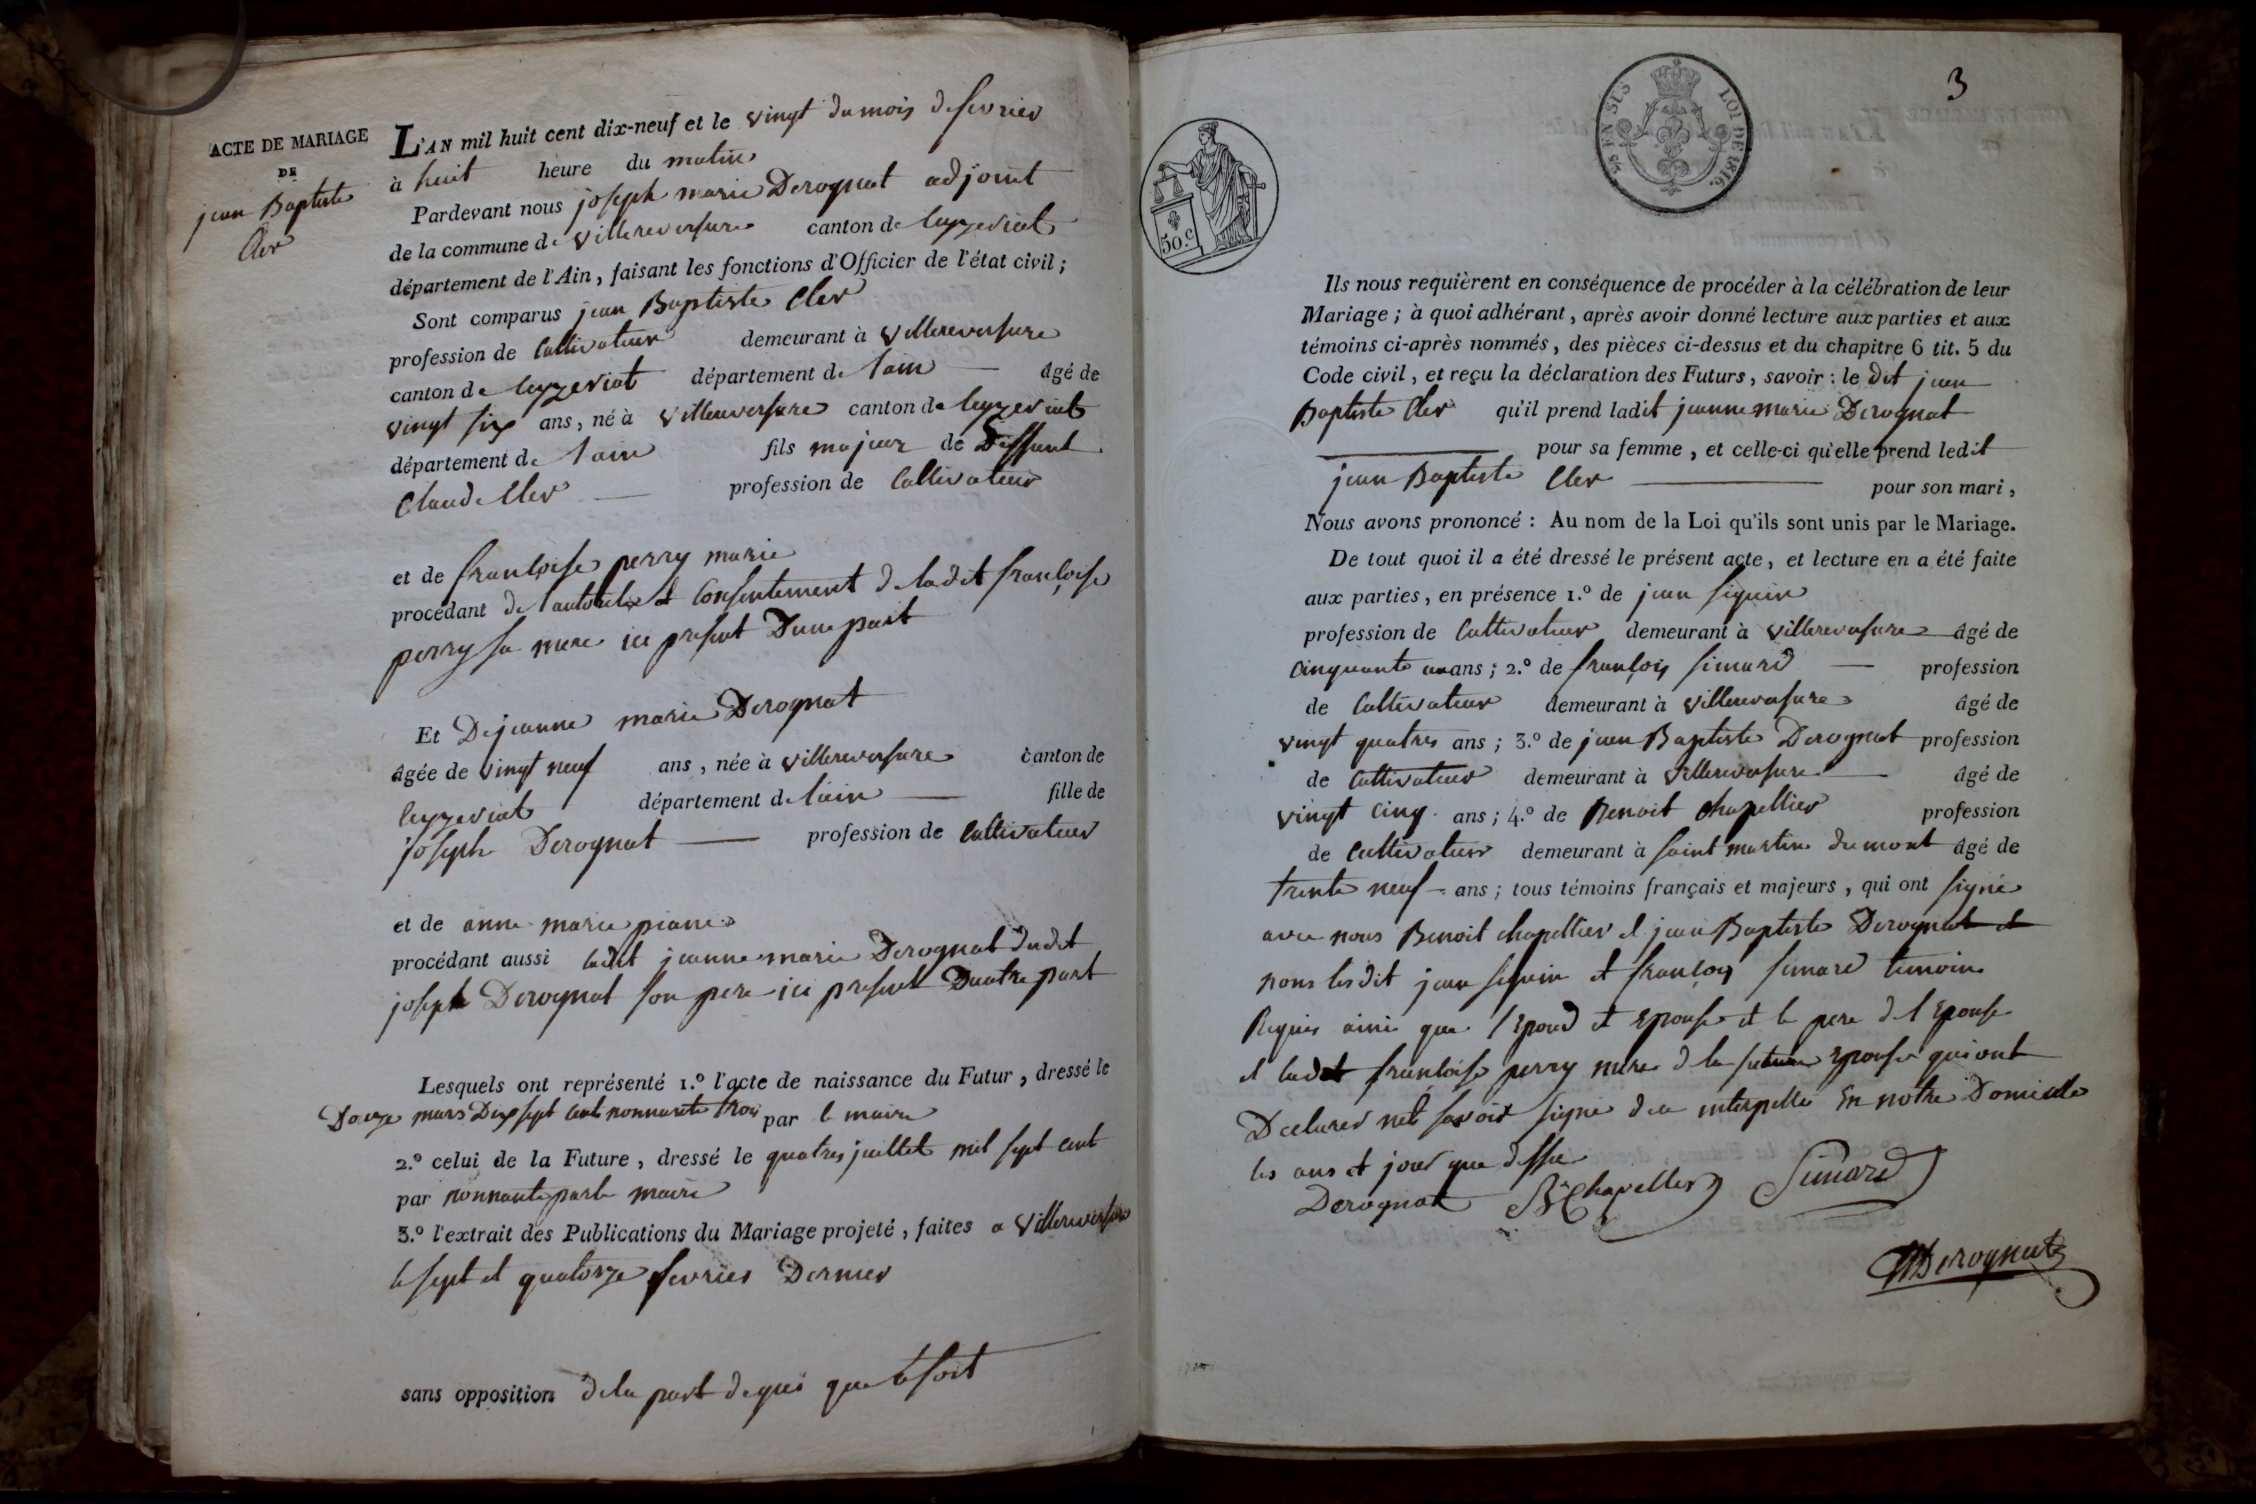 ACTE DE MARIAGE
DE
jean Baptiste
Cler
L'AN mil huit cent dix-neuf et le vingt du mois de fevrier
à huit heure du matin
Pardevant nous joseph marie Derognat adjoint
de la commune de villereversure canton de Ceyzeriat
département de l'Ain, faisant les fonctions d'Officier de l'état civil;
Sont comparus jean Baptiste Cler
profession de Cultivateur demeurant à villereversure
canton de Ceyzeriat département de lain âgé de
vingt six ans, né à villereversure canton de Ceyzeriat
département de lain fils majeur de Deffunt
Claude Cler profession de Cultivateur
et de françoise perry marie
procédant de lautorité et Consentement de ladit françoise
perry sa mere ici present Dune part
Et De jeanne marie Derognat
âgée de vingt neuf ans, née à villereversure canton de
Ceyzeriat département de lain fille de
joseph Derognat profession de Cultivateur
et de anne marie piane
procédant aussi ladit jeanne marie Derognat dudit
joseph Derognat son pere ici present Dautre part
Lesquels ont représenté 1.º l'acte de naissance du Futur, dressé le
Douze mars Dix sept cent nonnante trois par le maire
2.º celui de la Future, dressé le quatres juillet mil sept cent
par nonnante par le maire
3.º l'extrait des Publications du Mariage projeté, faites a villereversure
le sept et quatorze fevrier Dernier
sans opposition de la part de qui que ce soit
3
LOI DE 1816.
50.c
Ils nous requièrent en conséquence de procéder à la célébration de leur
Mariage; à quoi adhérant, après avoir donné lecture aux parties et aux
témoins ci-après nommés, des pièces ci-dessus et du chapitre 6 tit. 5 du
Code civil, et reçu la déclaration des Futurs, savoir: le dit jean
Baptiste Cler qu'il prend ladit jeanne marie Derognat
pour sa femme, et celle-ci qu'elle prend ledit
jean Baptiste Cler pour son mari,
Nous avons prononcé: Au nom de la Loi qu'ils sont unis par le Mariage.
De tout quoi il a été dressé le présent acte, et lecture en a été faite
aux parties, en présence 1.º de jean siguin
profession de Cultivateur demeurant à villereversure âgé de
cinquante ans; 2.º de françois simard profession
de Cultivateur demeurant à villereversure âgé de
vingt quatres ans; 3.º de jean Baptiste Derognat profession
de Cultivateur demeurant à villereversure âgé de
vingt cinq ans; 4.º de Benoit chapellier profession
de Cultivateur demeurant à saint martin du mont âgé de
trente neuf ans; tous témoins français et majeurs, qui ont signé
avec nous Benoit chapellier et jean Baptiste Derognat et
nons lesdit jean siguin et françois simard temoins
Requis ainsi que l'Epoud et Epouse et le pere de l'Epouse
et ladit françoise perry mere de la future Epouse qui ont
Declarer net savoir signé de ce interpellé En notre Domicile
les ans et jour que dessus
Derognat Bt Chapellier Simard
Derognat